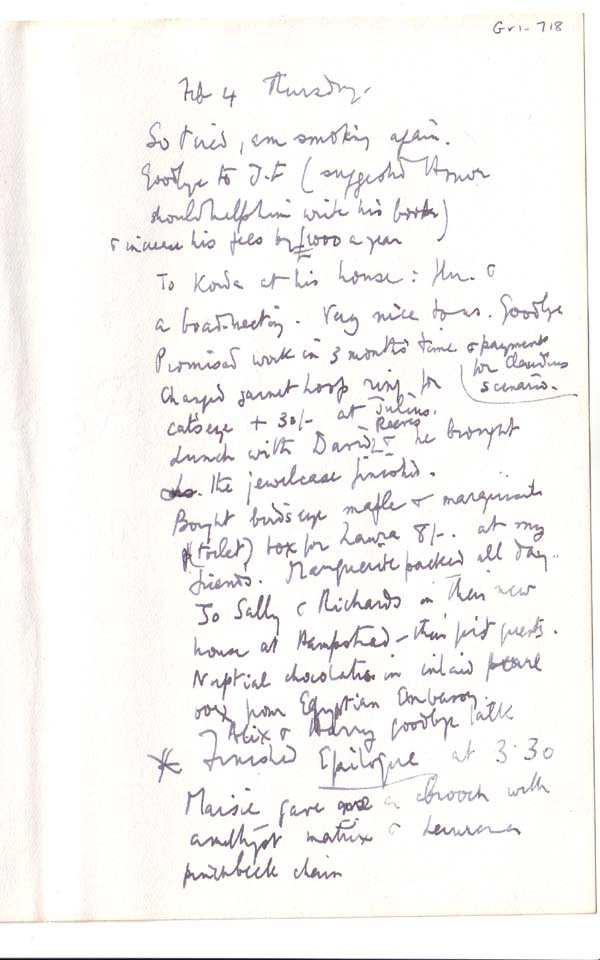 Gr1-718
Feb 4 Thursday.
So tired, am smoking again.
Goodbye to J.F (suggested Honor
should help him write his book)
& increase his fees by £1000 a year
To Korda at his house: &
a board-meeting. Very nice to us. Goodbye
Promised work in 3 months time & payment
for Claudius
scenario.
Changed garnet hoop ring for
catseye + 30/- at Julius.
Reeves
Lunch with David & he brought
the jewelcase finished.
Bought birdseye maple & marquisite
(toilet) box for Laura 8/-. at my
friends. Marguerite packed all day.
To Sally & Richards in their new
house at Hampstead – their first guests.
Nuptial chocolates in inlaid pearl
box from Egyptian Embassy.
Alix & Harry goodbye talk
Finished Epilogue at 3.30
Maisie gave a brooch with
amethyst matrix & Laura a
pinchbeck chain